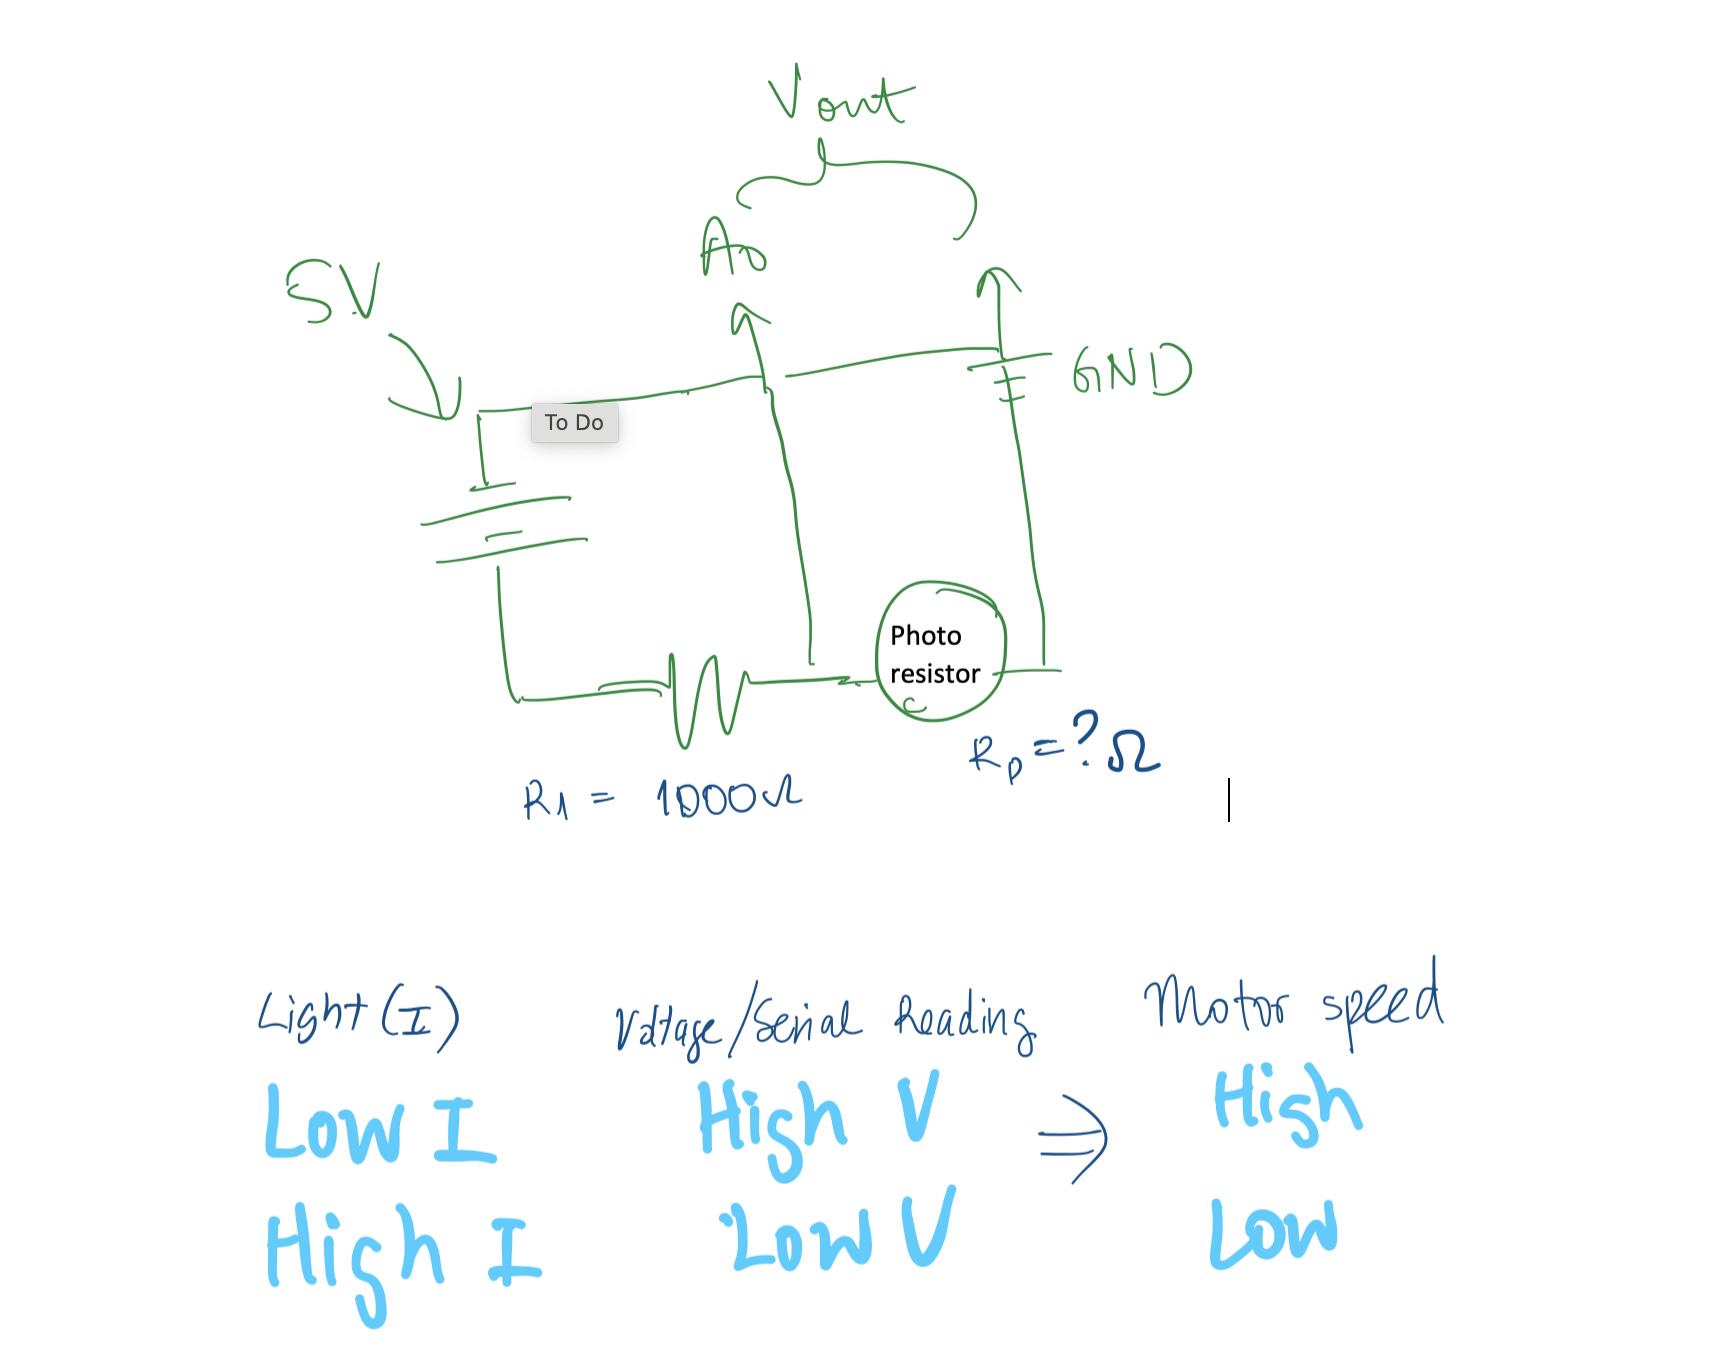 Vout
A0
5V
GND
To Do
Photo
resistor
Rp = ? Ω
R1 = 1000Ω
Light (I) Voltage/Serial Reading Motor speed
Low I High V ⇒ High
High I Low V Low